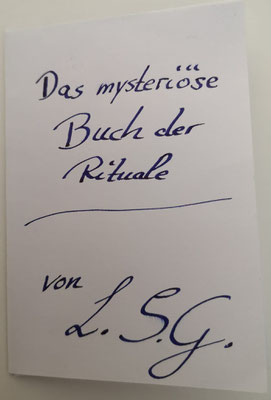 Das mysteriöse
Buch der
Rituale
von
L. S. G.